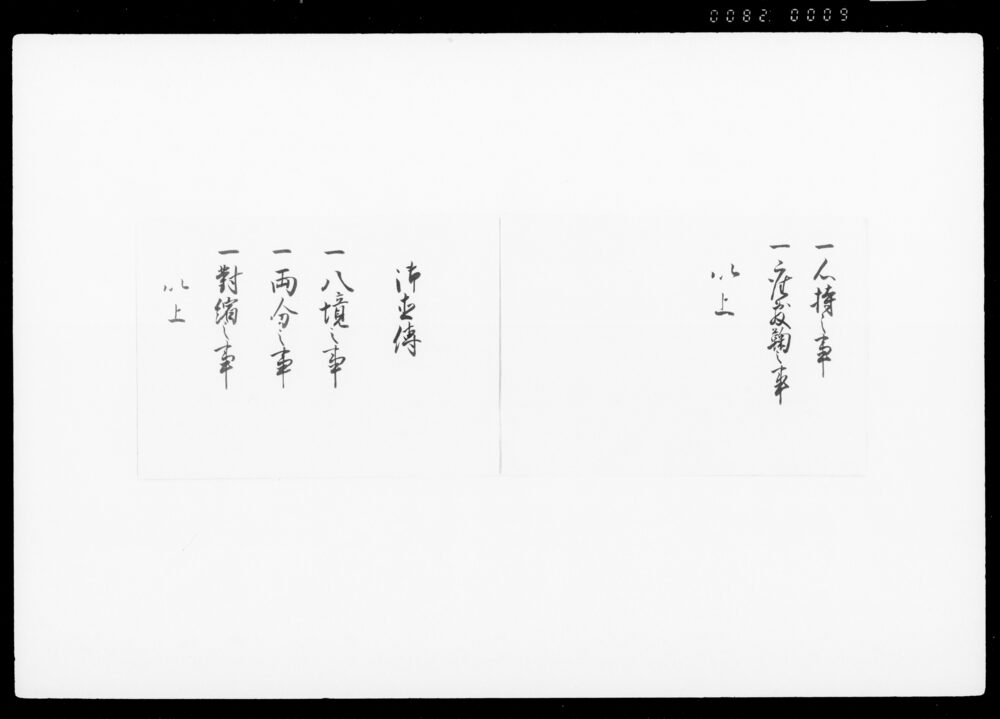 0082 0009
一心持之事
一座敷鞠之事
以上
御直傳
一八境之事
一両分之事
一對縮之事
以上